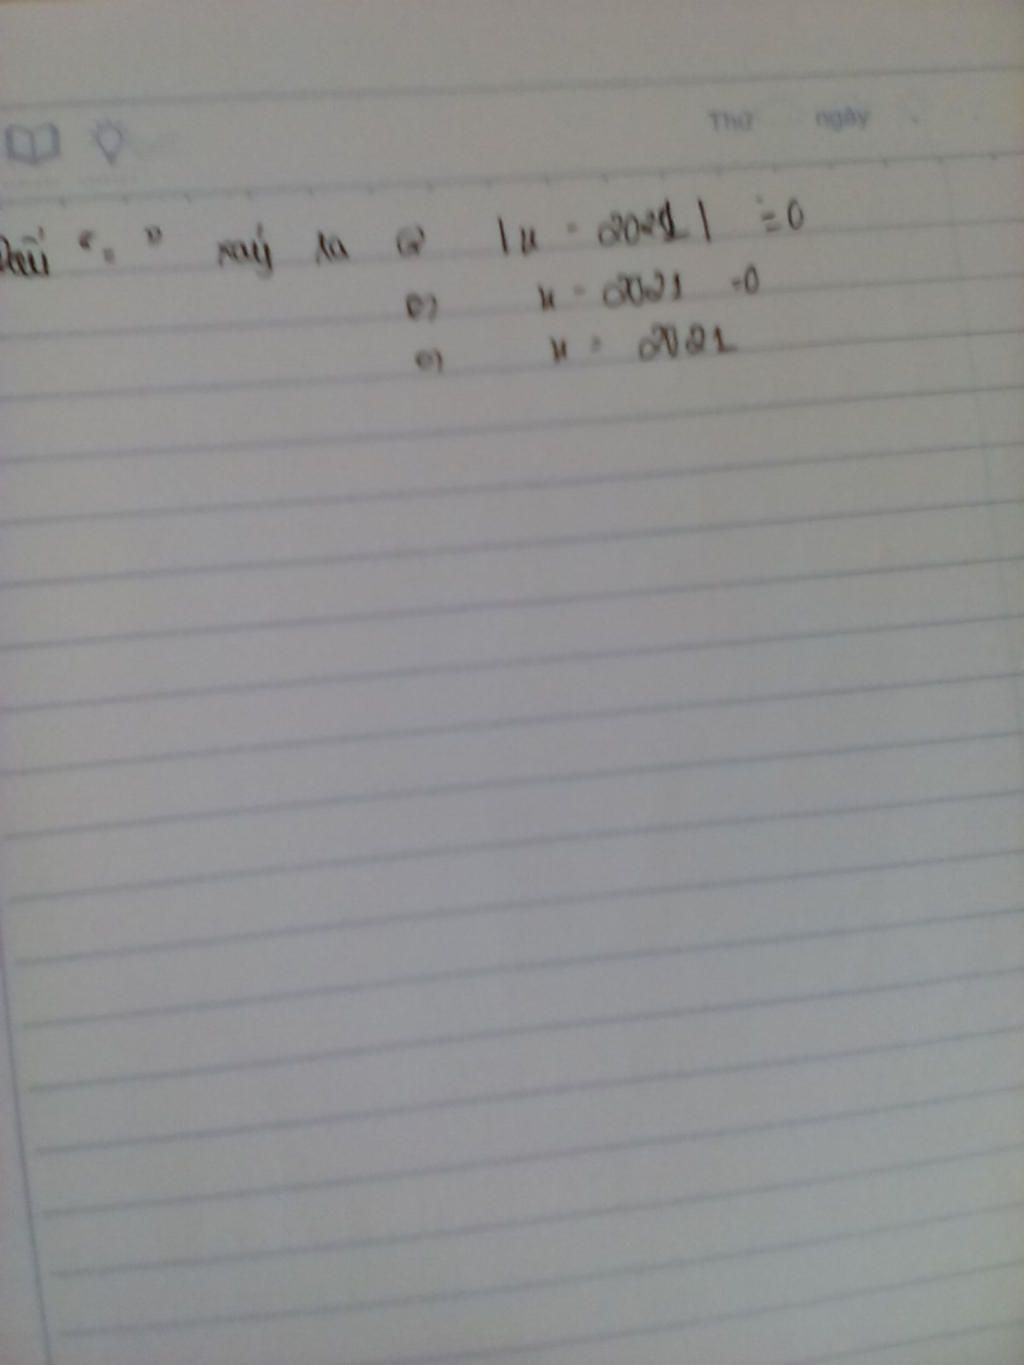 Thứ ngày
Dấu "=" xảy ra (=) |x - 2021| = 0
(=) x - 2021 = 0
(=) x = 2021